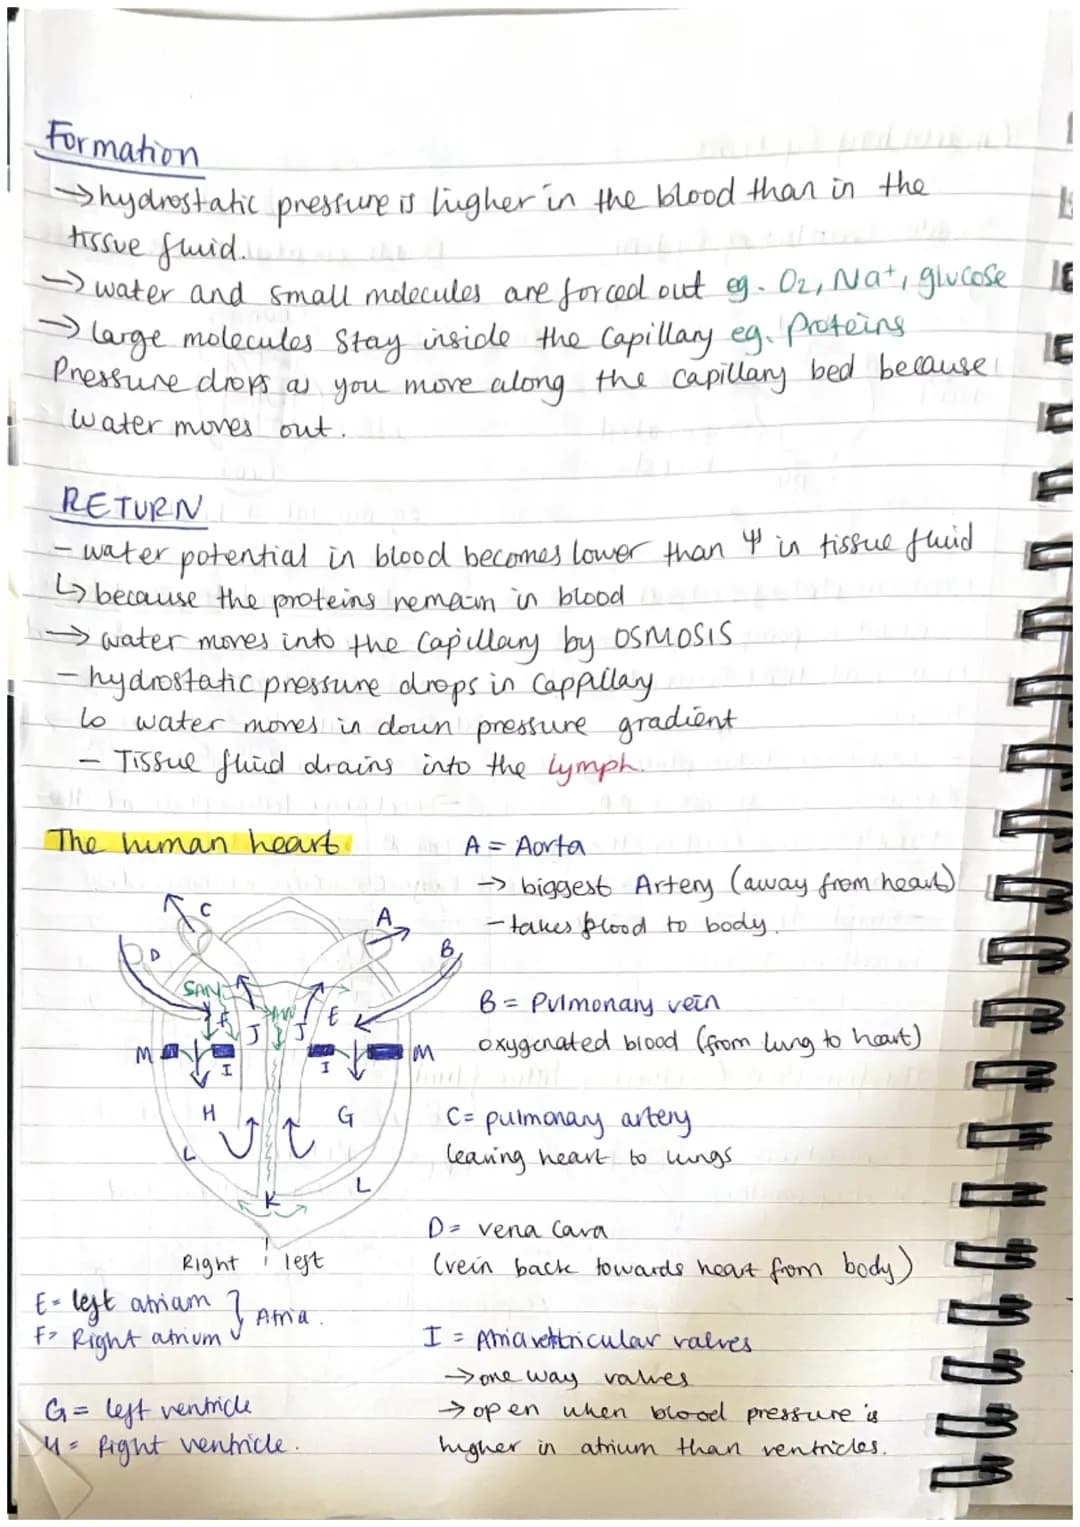 Formation
→ hydrostatic pressure is higher in the blood than in the
tissue fluid.
→ water and small molecules are forced out eg. O2, Na+, glucose
→ large molecules stay inside the capillary eg. Proteins
Pressure drops as you move along the capillary bed because
water moves out.
RETURN
- water potential in blood becomes lower than Ψ in tissue fluid
↳ because the proteins remain in blood
→ water moves into the capillary by OSMOSIS
- hydrostatic pressure drops in cappilary
↳ water moves in down pressure gradient
- Tissue fluid drains into the lymph.
The human heart
C
A
D
B
SAN
F
J
AVN
J
E
M
I
I
M
H
G
L
L
K
Right left
E = left atriam } Atria.
F = Right atrium
G = left ventricle
H = Right ventricle.
A = Aorta
→ biggest Artery (away from heart)
- takes blood to body.
B = Pulmonary vein
oxygenated blood (from lung to heart)
C = pulmonary artery
leaving heart to lungs
D = vena cava
(vein back towards heart from body)
I = valves
→ one way valves
→ open when blood pressure is
higher in atrium than ventricles.